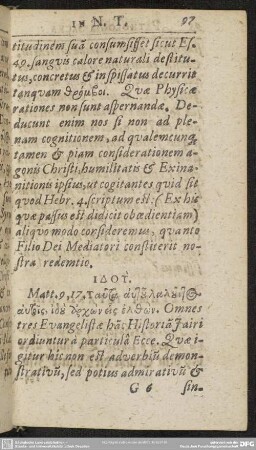 IN N. T. 97
titudinem suã consumsisset sicut Es.
49. sangvis calore naturali destitu-
tus, concretus & inspissatus decurrit
tanqvam θρόμβοι. Qvæ Physicæ
rationes non sunt aspernandæ. De-
ducunt enim nos si non ad ple-
nam cognitionem, ad qvalemcunq;
tamen & piam considerationem a-
gonis Christi, humilitatis & Exina-
nitionis ipsius, ut cogitantes qvid sit
qvod Hebr. 4. scriptum est: (Ex his
qvæ passus est didicit obœdientiam)
aliqvo modo consideremus, qvanto
Filio Dei Mediatori constiterit no-
stra redemtio.
ΙΔΟΥ.
Matt. 9, 17. Ταῦτα αὐτοῦ λαλοῦντος
αὐτοῖς, ἰδοὺ ἄρχων εἷς ἐλθὼν. Omnes
tres Evangelistæ hãc Historiã Jairi
ordiuntur à particulâ Ecce. Qvæ i-
gitur hic non est adverbiũ demon-
strativũ, sed potius admirativũ &
G 6 sin-